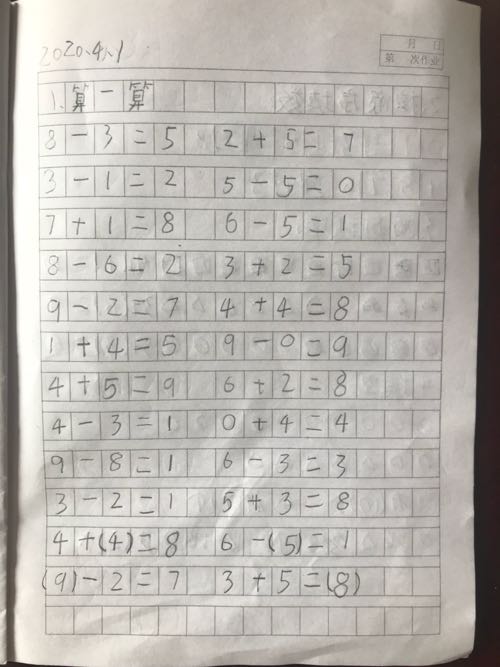 2020.4.1
月 日
第 次作业
1、算一算
8-3=5 2+5=7
3-1=2 5-5=0
7+1=8 6-5=1
8-6=2 3+2=5
9-2=7 4+4=8
1+4=5 9-0=9
4+5=9 6+2=8
4-3=1 0+4=4
9-8=1 6-3=3
3-2=1 5+3=8
4+(4)=8 6-(5)=1
(9)-2=7 3+5=(8)